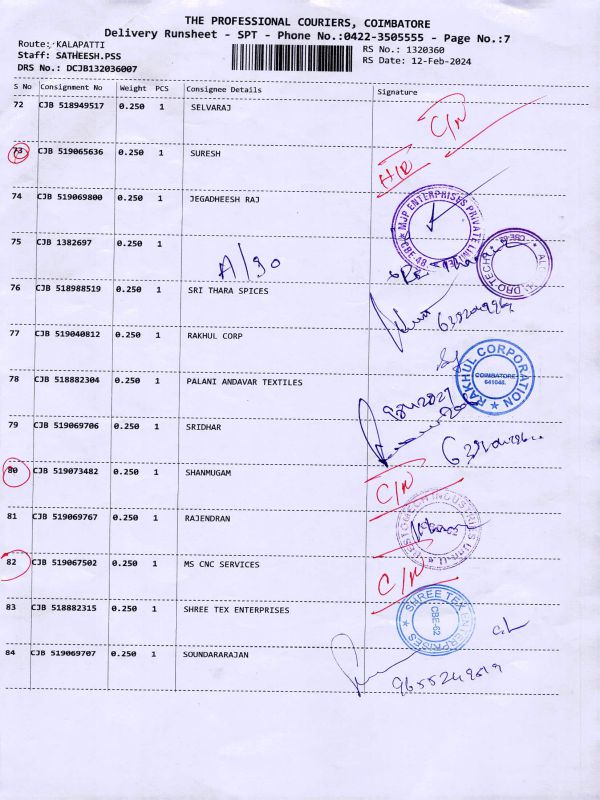 THE PROFESSIONAL COURIERS, COIMBATORE
Delivery Runsheet - SPT - Phone No.:0422-3505555 - Page No.:7
Route: KALAPATTI
Staff: SATHEESH.PSS
DRS No.: DCJB132036007
RS No.: 1320360
RS Date: 12-Feb-2024
S No Consignment No Weight PCS Consignee Details Signature
72 CJB 518949517 0.250 1 SELVARAJ C/N
73 CJB 519065636 0.250 1 SURESH
74 CJB 519069800 0.250 1 JEGADHEESH RAJ
MJP ENTERPRISES PRIVATE LIMITED CBE-48
75 CJB 1382697 0.250 1
76 CJB 518988519 0.250 1 SRI THARA SPICES
77 CJB 519040812 0.250 1 RAKHUL CORP
RAKHUL CORPORATION COIMBATORE
78 CJB 518882304 0.250 1 PALANI ANDAVAR TEXTILES
79 CJB 519069706 0.250 1 SRIDHAR
80 CJB 519073482 0.250 1 SHANMUGAM C/N
81 CJB 519069767 0.250 1 RAJENDRAN
82 CJB 519067502 0.250 1 MS CNC SERVICES C/N
83 CJB 518882315 0.250 1 SHREE TEX ENTERPRISES
SHREE TEX ENTERPRISES CBE-62
84 CJB 519069707 0.250 1 SOUNDARARAJAN